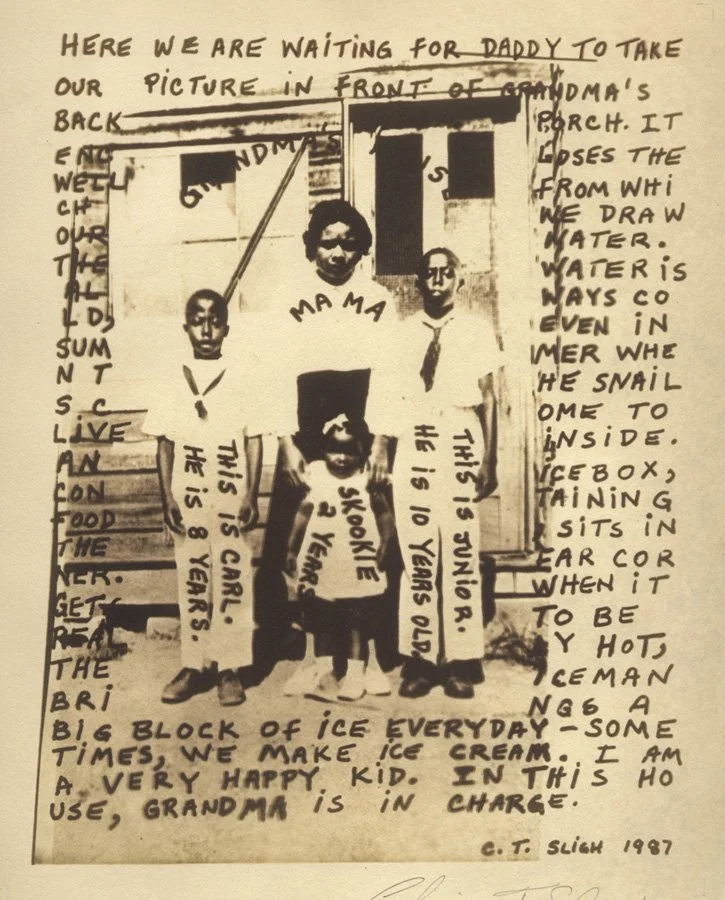 HERE WE ARE WAITING FOR DADDY TO TAKE
OUR PICTURE IN FRONT OF GRANDMA'S
BACK PORCH. IT
ENC LOSES THE
WELL FROM WHI
CH WE DRAW
OUR WATER.
THE WATER iS
AL WAYS CO
LD, EVEN iN
SUM MER WHE
N T HE SNAIL
S C OME TO
LiVE iNSiDE.
AN iCEBOX,
CON TAiNiNG
FOOD SiTS iN
THE EAR COR
NER. WHEN iT
GETS TO BE
REAL LY HOT,
THE iCEMAN
BRi NGS A
BiG BLOCK OF iCE EVERYDAY - SOME
TiMES, WE MAKE iCE CREAM. I AM
A VERY HAPPY KiD. IN THiS HO
USE, GRANDMA iS iN CHARGE.
GRANDMA'S
MAMA
THiS iS CARL.
HE iS 8 YEARS.
SKOOKiE
2 YEARS
THiS iS JUNiOR.
HE iS 10 YEARS OLD.
C. T. SLiGH 1987